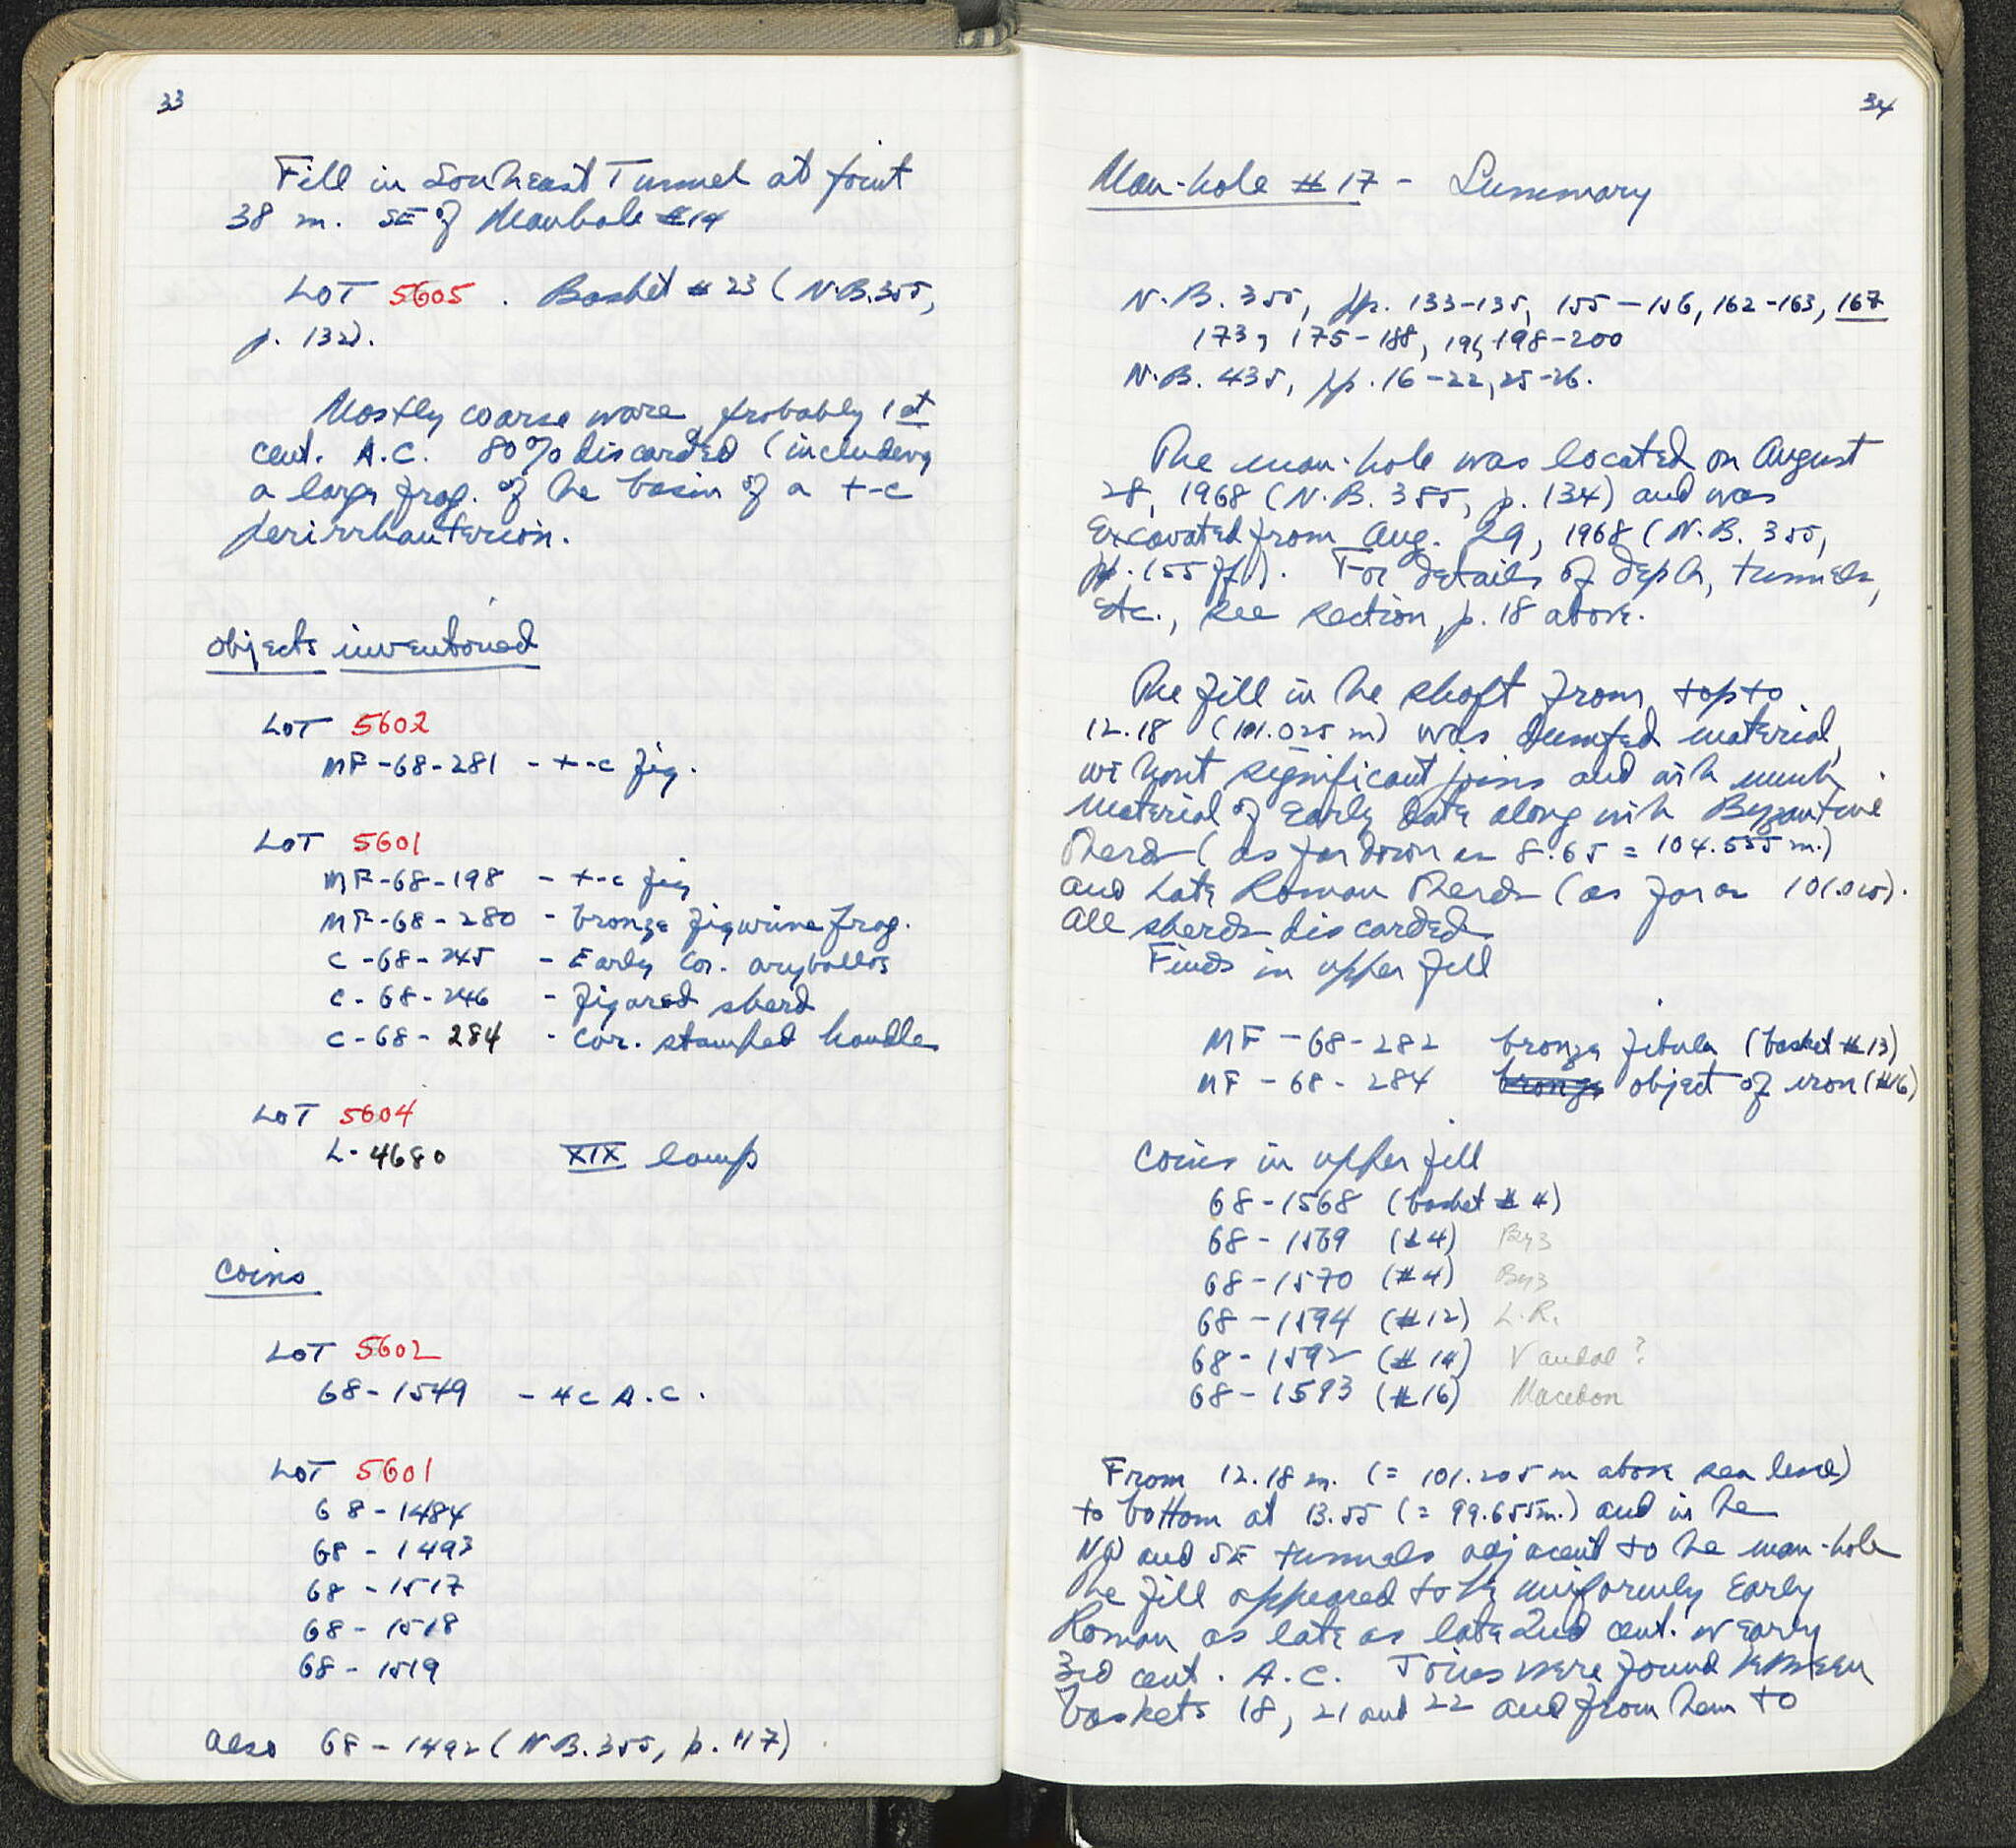 33
Fill in Southeast Tunnel at point
38 m. SE of Manhole #14
LOT 5605. Basket #23 (N.B. 355,
p. 132).
Mostly coarse ware, probably 1st
cent. A.C. 80% discarded (including
a large frag. of the basin of a t-c
perirrhanterion.
Objects inventoried
LOT 5602
MF-68-281 - t-c fig.
LOT 5601
MF-68-198 - t-c fig
MF-68-280 - bronze figurine frag.
C-68-245 - Early Cor. aryballos
C-68-246 - figured sherd
C-68-284 - Cor. stamped handle
LOT 5604
L-4680 XIX lamp
Coins
LOT 5602
68-1549 - 4c A.C.
LOT 5601
68-1484
68-1493
68-1517
68-1518
68-1519
also 68-1492 (N.B. 355, p. 117)
34
Man-hole #17 - Summary
N.B. 355, pp. 133-135, 155-156, 162-163, 167
173, 175-188, 196, 198-200
N.B. 435, pp. 16-22, 25-26.
The man-hole was located on August
28, 1968 (N.B. 355, p. 134) and was
excavated from Aug. 29, 1968 (N.B. 355,
pp. 155 ff.). For details of depth, tunnels,
etc., see section, p. 18 above.
The fill in the shaft from top to
12.18 (101.025 m) was dumped material,
without significant joins and with much
material of early date along with Byzantine
sherds (as far down as 8.65 = 104.555 m.)
and Late Roman sherds (as far as 101.025).
All sherds discarded
Finds in upper fill
MF-68-282 bronze fibula (basket #13)
MF-68-284 bronze object of iron (#16)
Coins in upper fill
68-1568 (basket #4)
68-1569 (#4) Byz
68-1570 (#4) Byz
68-1594 (#12) L.R.
68-1592 (#14) Vandal?
68-1593 (#16) Macedon
From 12.18 m. (= 101.205 m above sea level)
to bottom at 13.55 (= 99.655 m.) and in the
NW and SE tunnels adjacent to the man-hole
the fill appeared to be uniformly Early
Roman as late as late 2nd cent. or early
3rd cent. A.C. Joins were found between
baskets 18, 21 and 22 and from them to